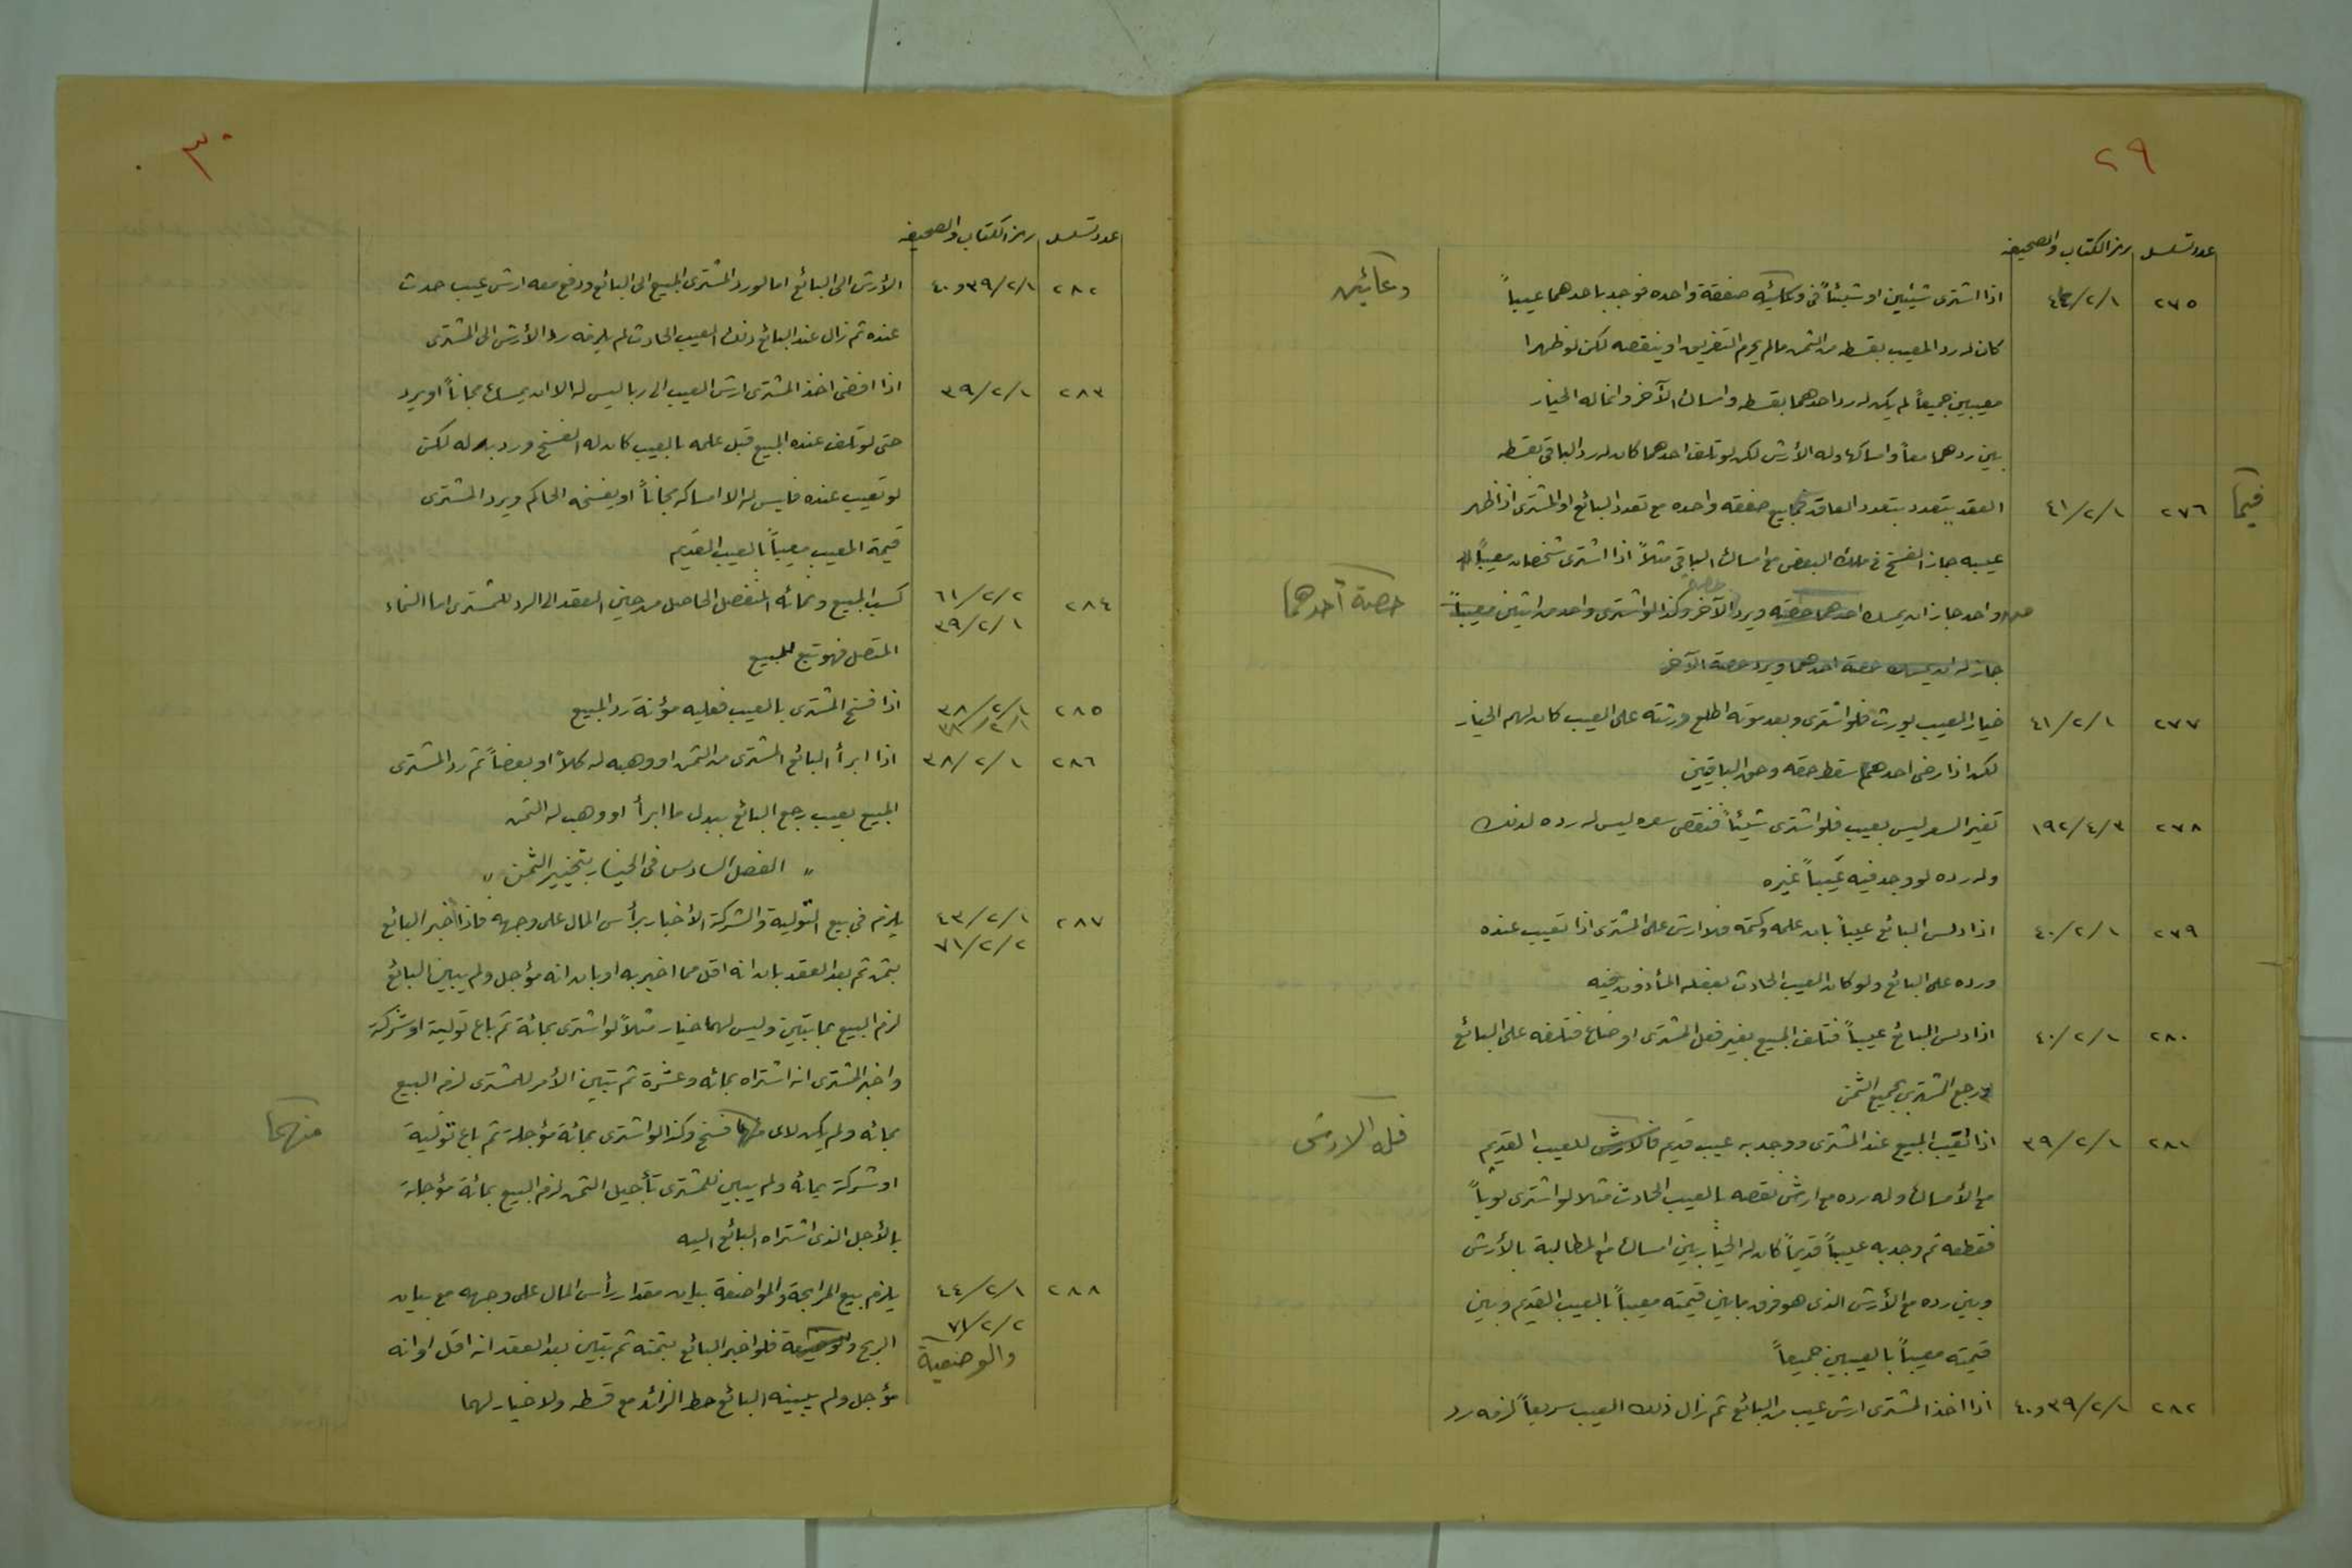 ٢٩
عدد تسلسل رمز الكتاب والصحيفه
٢٧٥ ٤٢/٢/١ اذا اشترى شيئين او شيئاً في وعائيه صفقة واحده فوجد باحدهما عيباً
وعائين
كان له رد المعيب بقسطه من الثمن مالم يحرم التفريق او ينقصه لكن لو ظهرا
معيبين جميعاً لم يكن له رد احدهما بقسطه وامساك الآخر وانما له الخيار
بين ردهما معاً وامساكها وله الأرش لكن لو تلف احدهما كان له رد الباقي بقسطه
٢٧٦ ٤١/٢/١ العقد يتعدد بتعدد العاقد فيما بيع صفقه واحده مع تعدد البائع او المشترى اذا ظهر
فيما
عيبه جاز الفسخ في ملك البعض مع امساك الباقي مثلاً اذا اشترى شخصان معيباً
من واحد جاز ان يمسك احدهما حصته ويرد الآخر وكذا لو اشترى واحد من اثنين معيباً
حصة أحدهما
جاز له ان يمسك حصة احدهما ويرد حصة الآخر
٢٧٧ ٤١/٢/١ خيار العيب يورث فلو اشترى وبعد موته اطلع ورثته على العيب كان لهم الخيار
لكن اذا رضى احدهم سقط حقه وحق الباقيين
٢٧٨ ١٩٢/٤/٣ تغير السعر ليس بعيب فلو اشترى شيئاً فنقص سعره ليس له رده لذلك
وله رده لو وجد فيه عيباً غيره
٢٧٩ ٤٠/٢/١ اذا دلس البائع عيباً بان علمه وكتمه فلا ارش على المشترى اذا تعيب عنده
ورده على البائع ولو كان العيب الحادث بفعله المأذون فيه
٢٨٠ ٤٠/٢/١ اذا دلس البائع عيباً فتلف المبيع بغير فعل المشترى او ضاع فتلفه على البائع
ورجع المشترى بجميع الثمن
٢٨١ ٣٩/٢/١ اذا تعيب المبيع عند المشترى ووجد به عيب قديم فالارش للعيب القديم
فله الارش
مع الأمساك وله رده مع ارش نقصه بالعيب الحادث مثلا لو اشترى ثوباً
فقطعه ثم وجد به عيباً قديماً كان له الخيار بين امساك مع المطالبة بالأرش
وبين رده مع الأرش الذى هو فرق ما بين قيمته معيباً بالعيب القديم وبين
قيمته معيباً بالعيبين جميعاً
٢٨٢ ٣٩/٢/١ و٤٠ اذا اخذ المشترى ارش عيب من البائع ثم زال ذلك العيب سريعاً لزمه رد
٣٠
عدد تسلسل رمز الكتاب والصحيفه
٢٨٢ ٣٩/٢/١ و٤٠ الأرش الى البائع اما لو رد المشترى المبيع الى البائع ودفع معه ارش عيب حدث
عنده ثم زال عند البائع ذلك العيب الحادث لم يلزمه رد الأرش الى المشترى
٢٨٣ ٣٩/٢/١ اذا افضى اخذ المشترى ارش العيب الى ربا ليس له الا ان يمسك مجاناً او يرد
حتى لو تلف عنده المبيع قبل علمه بالعيب كان له الفسخ ورد بدله لكن
لو تعيب عنده فليس له الا امساكه مجاناً او يفسخه الحاكم ويرد المشترى
قيمة المعيب معيباً بالعيب القديم
٢٨٤ ٦١/٢/٢ كسب المبيع ونمائه المنفصل الحاصل من حين العقد الى الرد للمشترى اما النماء
٣٩/٢/١
المتصل فهو تبع للمبيع
٢٨٥ ٣٨/٢/١ اذا فسخ المشترى بالعيب فعليه مؤنة رد المبيع
٣٨/٢/١
٢٨٦ ٣٨/٢/١ اذا ابرأ البائع المشترى من الثمن او وهبه له كلاً او بعضاً ثم رد المشترى
المبيع بعيب رجع البائع ببدل ما ابرأ او وهب له الثمن
" الفصل السادس في الخيار بتخيير الثمن "
٢٨٧ ٤٣/٢/١ يلزم في بيع التولية والشركة الأخبار برأس المال على وجهه فاذا اخبر البائع
٧١/٢/٢
بثمن ثم بعد العقد بان انه اقل مما اخبر به او بان انه مؤجل ولم يبين البائع
لزم البيع بما تبين وليس لهما خيار مثلاً لو اشترى بمائة ثم باع تولية او شركة
واخبر المشترى انه اشتراه بمائه وعشرة ثم تبين الأمر للمشترى لزم البيع
بمائه ولم يكن لاى منهما فسخ وكذا لو اشترى بمائة مؤجلة ثم باع تولية
منهما
او شركة بمائه ولم يبين للمشترى تأجيل الثمن لزم البيع بمائة مؤجلة
بالأجل الذى اشتراه البائع اليه
٢٨٨ ٤٤/٢/١ يلزم بيع المرابحة والمواضعة بيان مقدار رأس المال على وجهه مع بيان
٧١/٢/٢
الربح والوضيعة فلو اخبر البائع بثمنه ثم تبين بعد العقد انه اقل او انه
والوضعية
مؤجل ولم يبينه البائع حط الزائد مع قسطه ولا خيار لهما